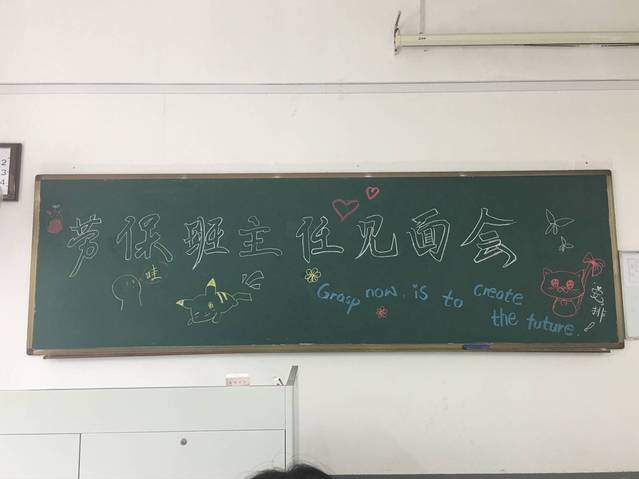 劳保班主任见面会
哇
Grasp now. is to create
the future.
2
3
4